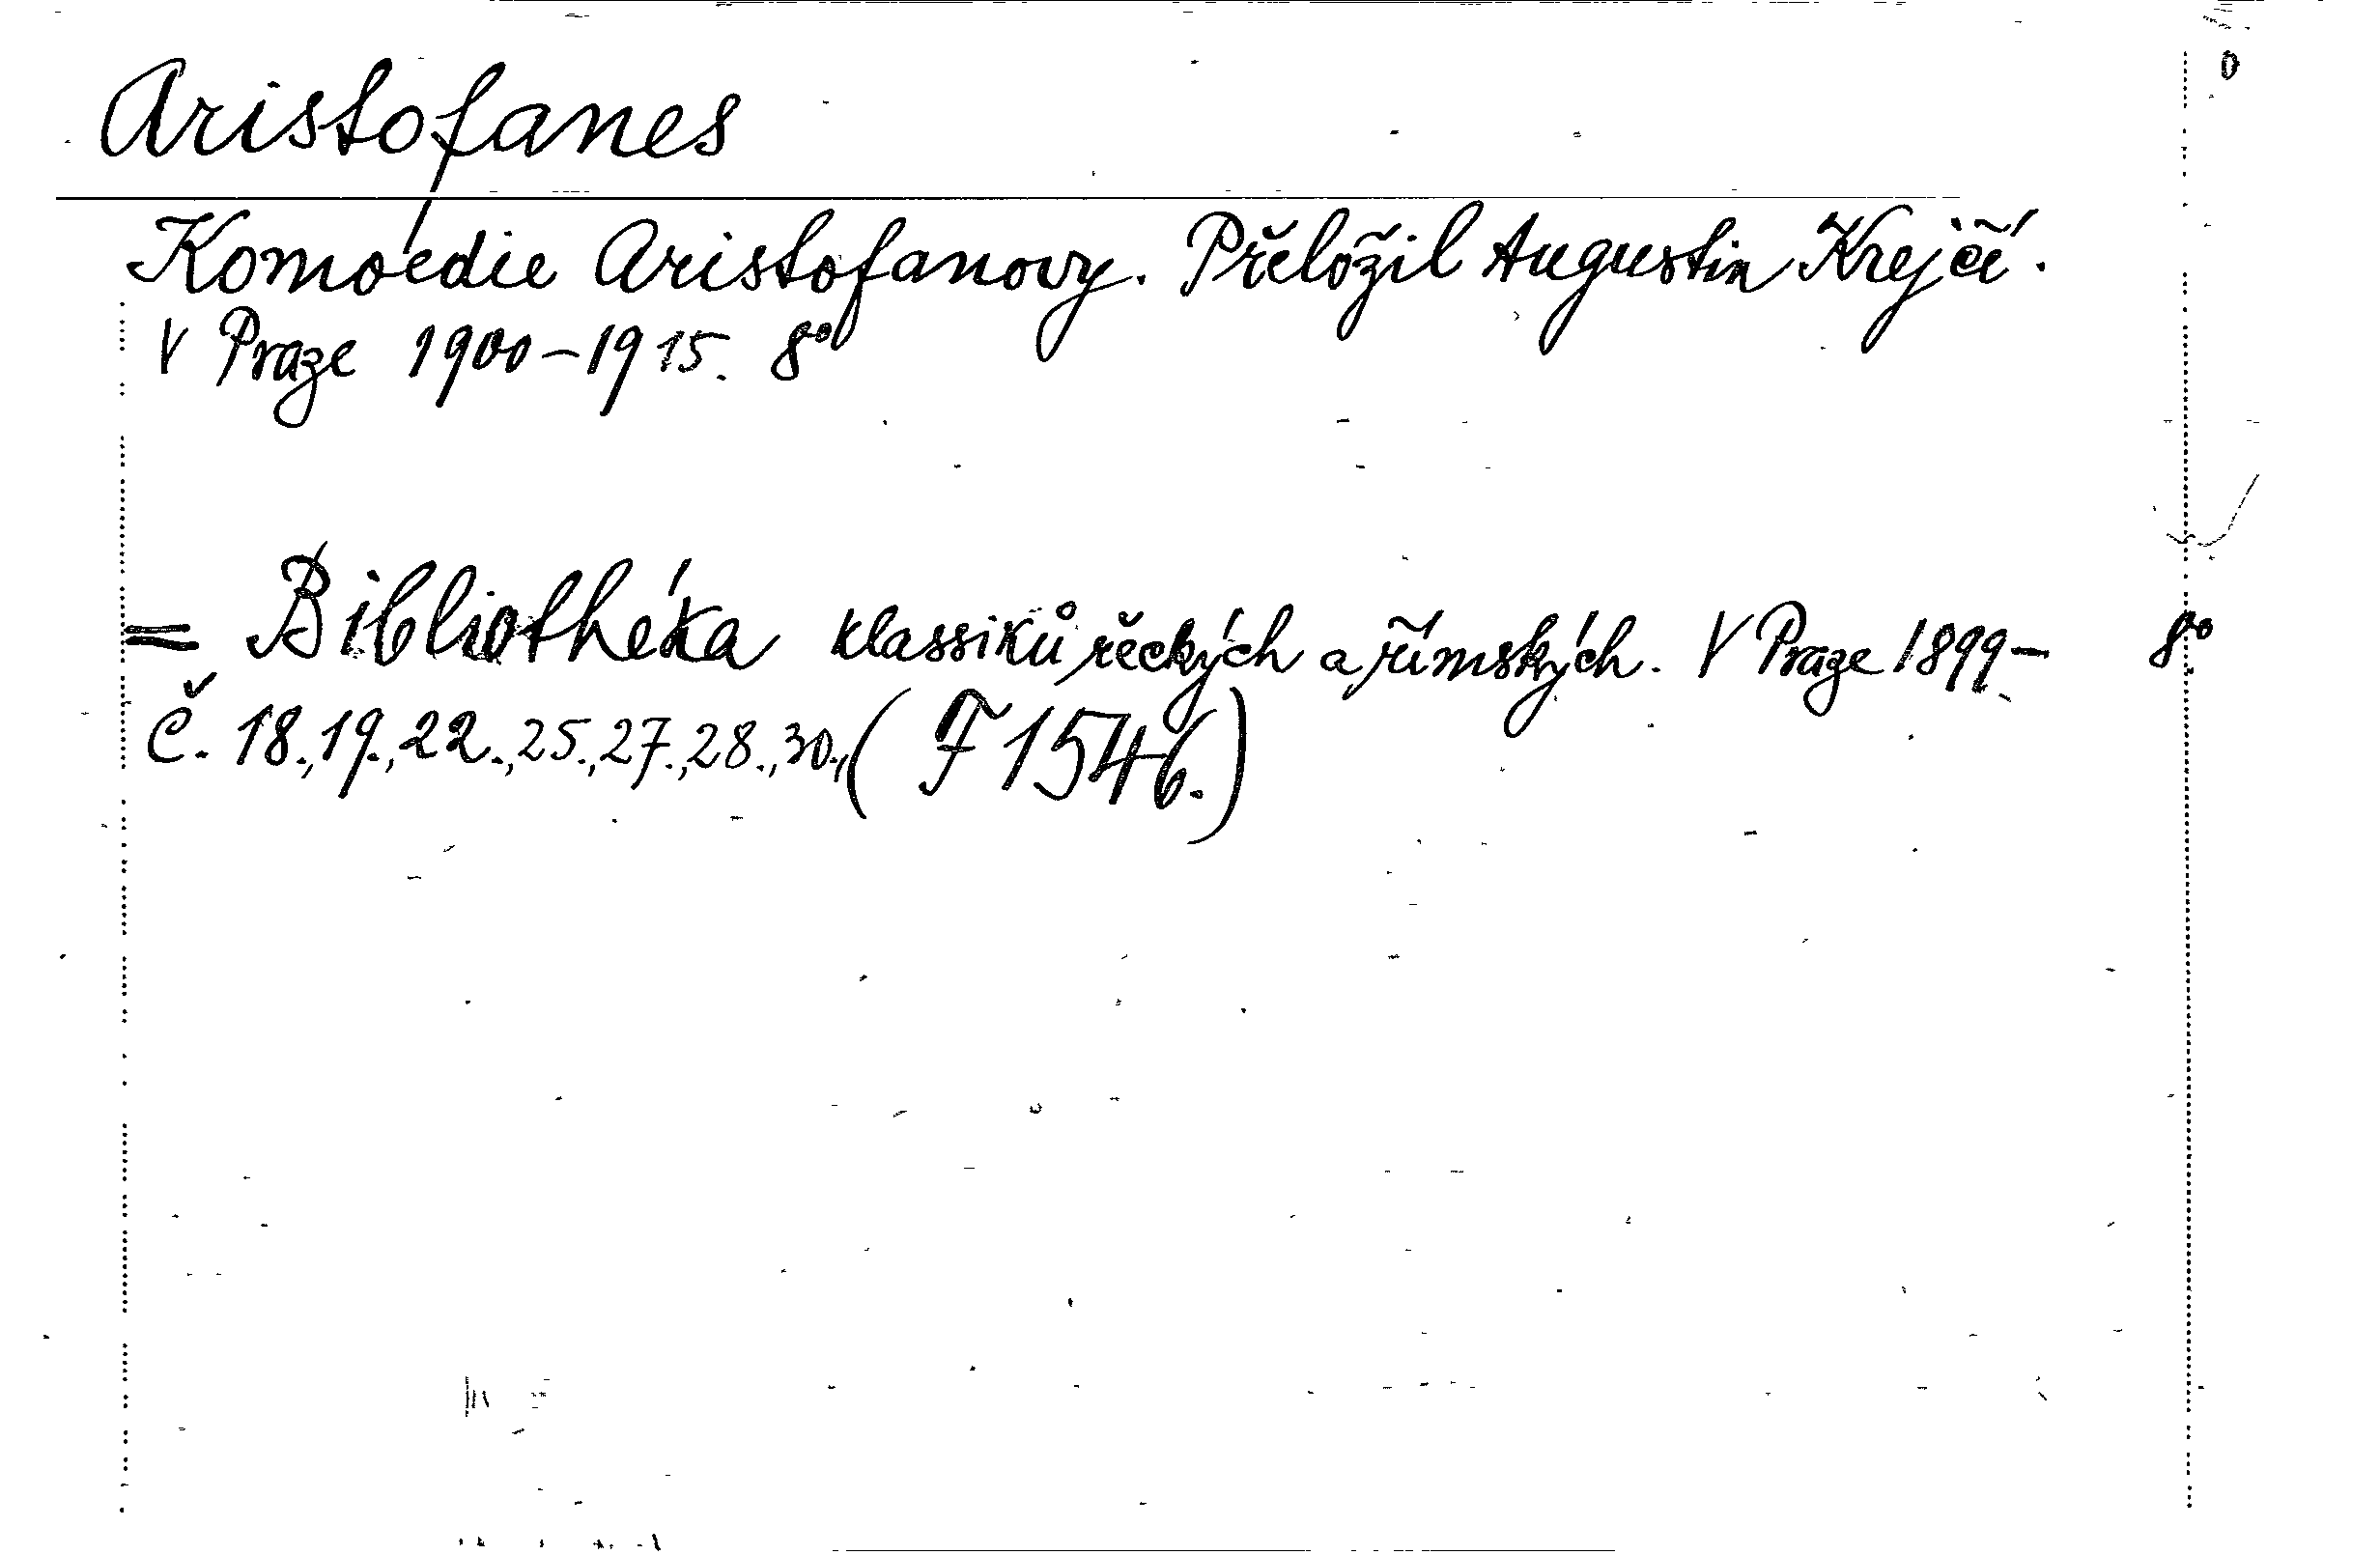 Aristofanes
Komoedie Aristofanovy. Přeložil Augustin Krejčí.
V Praze 1900–1915. 8°
= Bibliothéka klassiků řeckých a římských. V Praze 1899– 8°.
Č. 18., 19., 22., 25., 27., 28., 30., (F 1546.)